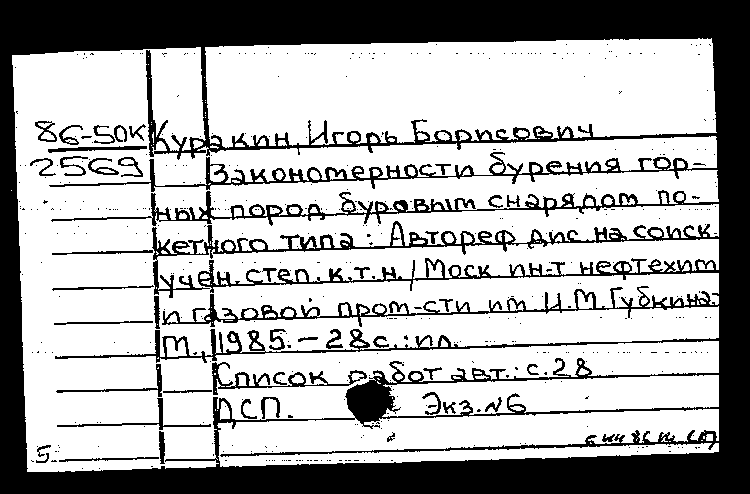 86-50к Куракин, Игорь Борисович
2569 Закономерности бурения гор-
ных пород буровым снарядом по-
кетного типа: Автореф дис. на соиск.
учен. степ. к.т.н. / Моск ин-т нефтехим
и газовой пром-сти им И.М. Губкина-
М., 1985. – 28 с. : ил.
Список работ авт.: с. 28
ДСП. Экз. №6
5.